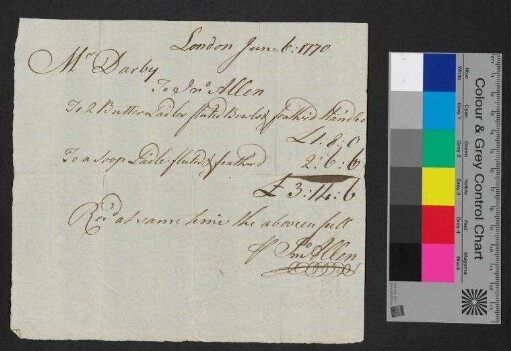 London June 6: 1770
Mr Darby
To Jno Allen
To 2 Butter Ladles fluted Bowles & feather'd Handles
£1:8:0
To a Soop Ladle fluted & feather'd 2:6:6
£3:14:6
Rec'd at same time the above in full
Jno Allen
Colour & Grey Control Chart
Blue Cyan Green Yellow Red Magenta
White Grey 1 Grey 2 Grey 3 Grey 4 Black